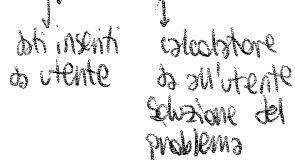 dati inseriti
da utente
calcolatore
da all'utente
soluzione del
problema